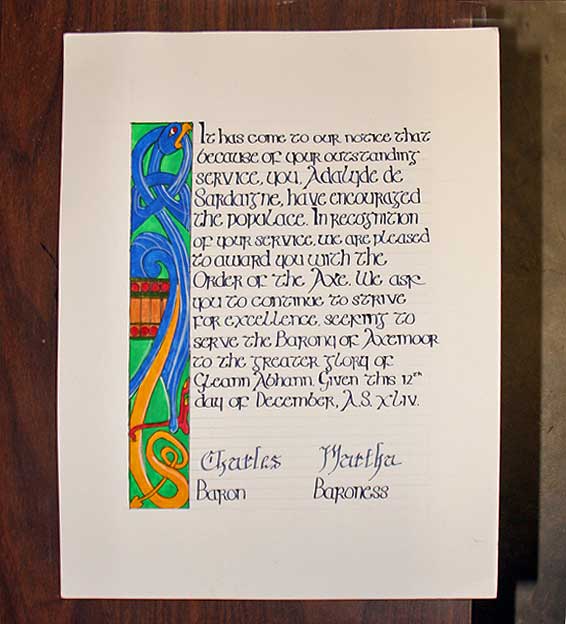 It has come to our notice that
because of your outstanding
service, you, Adalyde de
Sardaigne, have encouraged
the popalace. In recognition
of your service, we are pleased
to award you with the
Order of the Axe. We ask
you to continue to strive
for excellence, seeking to
serve the Barony of Axemoor
to the greater glory of
Gleann Abhann. Given this 12th
day of December, A.S. XLIV.
Charles Martha
Baron Baroness